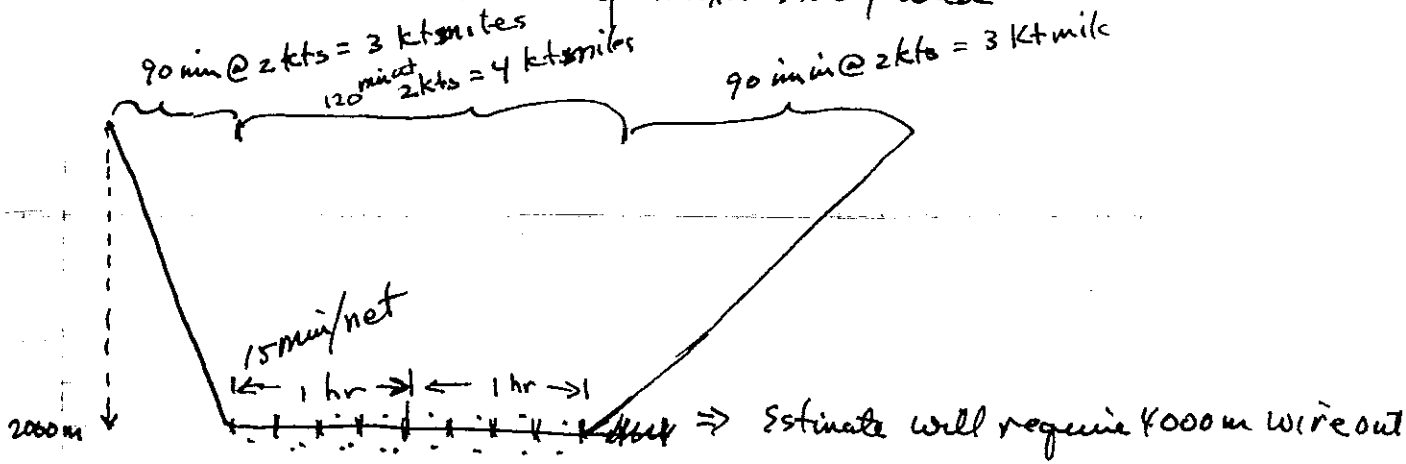 90 min @ 2 kts = 3 kts miles
120 min at 2 kts = 4 kts miles
90 min @ 2 kts = 3 Kt mile
15 min/net
1 hr 1 hr
2000 m
⇒ Estimate will require 4000 m wire out